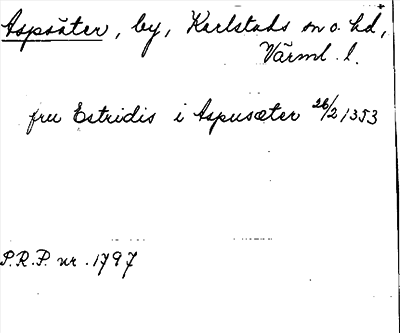 Aspsäter, by, Karlstads sn o. hd,
Värml. l.
fru Estridis i Aspusæter 26/2 1353
P.R.P. nr. 1797